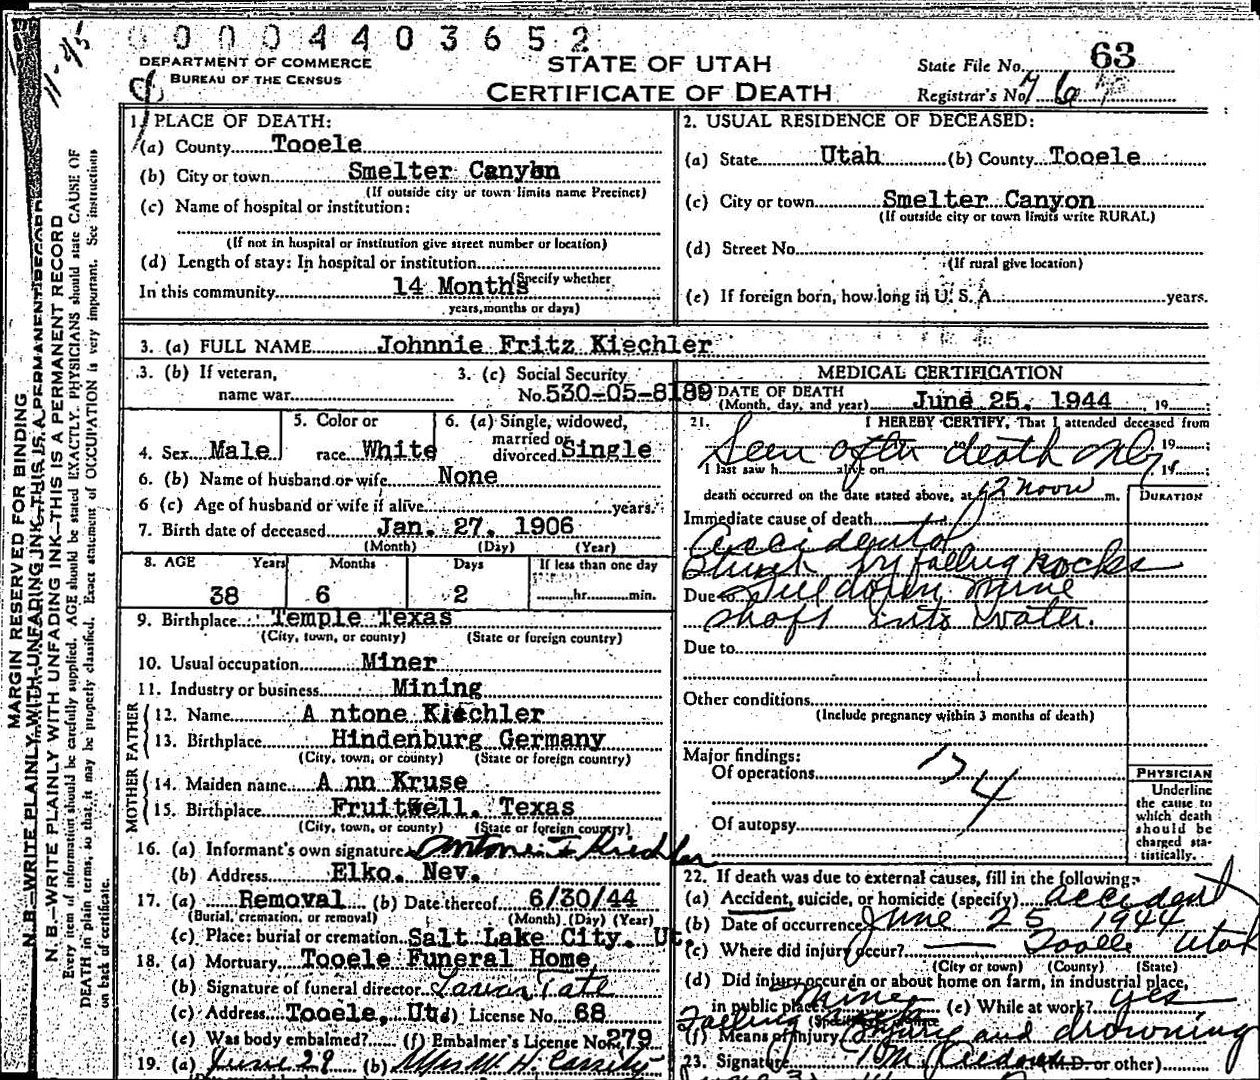 0 0 0 0 4 4 0 3 6 5 2
11-45
DEPARTMENT OF COMMERCE
BUREAU OF THE CENSUS
STATE OF UTAH
CERTIFICATE OF DEATH
State File No. 63
Registrar's No.
MARGIN RESERVED FOR BINDING
N. B.—WRITE PLAINLY WITH UNFADING INK—THIS IS A PERMANENT RECORD
N. B.—WRITE PLAINLY WITH UNFADING INK—THIS IS A PERMANENT RECORD
Every item of information should be carefully supplied. AGE should be stated EXACTLY. PHYSICIANS should state CAUSE OF
DEATH in plain terms, so that it may be properly classified. Exact statement of OCCUPATION is very important. See instructions
on back of certificate.
1. PLACE OF DEATH:
(a) County Tooele
(b) City or town Smelter Canyon
(If outside city or town limits name Precinct)
(c) Name of hospital or institution:
(If not in hospital or institution give street number or location)
(d) Length of stay: In hospital or institution
(Specify whether
In this community 14 Months
years, months or days)
2. USUAL RESIDENCE OF DECEASED:
(a) State Utah (b) County Tooele
(c) City or town Smelter Canyon
(If outside city or town limits write RURAL)
(d) Street No.
(If rural give location)
(e) If foreign born, how long in U. S. A. years.
3. (a) FULL NAME Johnnie Fritz Kiechler
3. (b) If veteran,
name war
3. (c) Social Security
No. 530-05-8189
4. Sex Male
5. Color or
race White
6. (a) Single, widowed,
married or
divorced Single
6. (b) Name of husband or wife None
6 (c) Age of husband or wife if alive years.
7. Birth date of deceased Jan. 27, 1906
(Month) (Day) (Year)
8. AGE Years Months Days If less than one day
38 6 2 hr. min.
9. Birthplace Temple Texas
(City, town, or county) (State or foreign country)
10. Usual occupation Miner
11. Industry or business Mining
FATHER
12. Name A ntone Kiechler
13. Birthplace Hindenburg Germany
(City, town, or county) (State or foreign country)
MOTHER
14. Maiden name A nn Kruse
15. Birthplace Fruitwell, Texas
(City, town, or county) (State or foreign country)
16. (a) Informant's own signature Antone F Kiechler
(b) Address Elko. Nev.
17. (a) Removal (b) Date thereof 6/30/44
(Burial, cremation, or removal) (Month) (Day) (Year)
(c) Place: burial or cremation Salt Lake City. Ut.
18. (a) Mortuary Tooele Funeral Home
(b) Signature of funeral director Tate
(c) Address Tooele, Ut. (d) License No. 68
(e) Was body embalmed? (f) Embalmer's License No. 279
19. (a) June 29 (b) Mrs. W. H. Cassity
MEDICAL CERTIFICATION
20. DATE OF DEATH
(Month, day, and year) June 25, 1944, 19
21. I HEREBY CERTIFY, That I attended deceased from
Seen after death only 19
I last saw h alive on 19
death occurred on the date stated above, at 12 noon m.
DURATION
Immediate cause of death
Accidental
Struck by falling rocks
Due to fell down mine
shaft into water.
Due to
Other conditions
(Include pregnancy within 3 months of death)
Major findings:
Of operations
174
Of autopsy
PHYSICIAN
Underline
the cause to
which death
should be
charged sta-
tistically.
22. If death was due to external causes, fill in the following:
(a) Accident, suicide, or homicide (specify) accident
(b) Date of occurrence June 25 1944
(c) Where did injury occur? Tooele Utah
(City or town) (County) (State)
(d) Did injury occur in or about home on farm, in industrial place,
in public place? Mine (e) While at work? yes
Falling rock
(f) Means of injury injury and drowning
23. Signature M.D. or other)